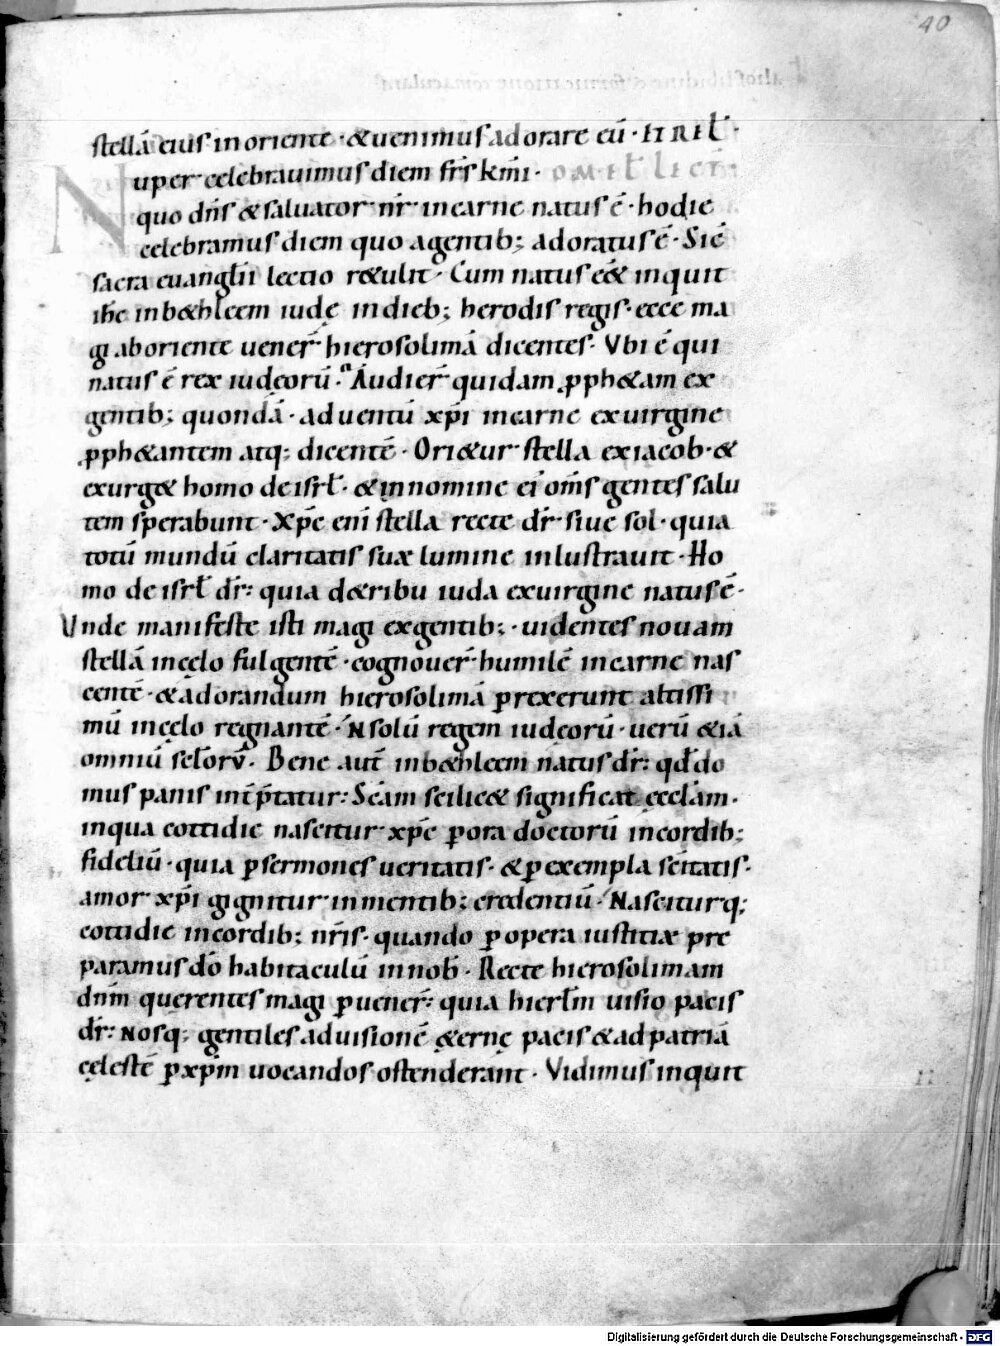 40
stellā eius in oriente · & uenimus adorare eū · ET REL̄ ·
Nuper celebrauimus diem frs̄ km̄i · OMEL̄ LECT̄ ·
quo dn̄s & saluator nr̄ in carne natus ē · hodie
celebramus diem quo a gentib; adoratus ē · Sic̄
sacra euangl̄ii lectio r&ulit · Cum natus ēē& inquit
ih̄c in b&hleem iudę in dieb; herodis regis · ecce ma
gi ab oriente uener̄ hierosolimā dicentes · Vbi ē qui
natus ē rex iudęorū · Audier̄ quidam ꝓph&am ex
gentib; quondā · aduentū xp̄i in carne ex uirgine
ꝓph&antem atq; dicentē · Ori&ur stella ex iacob · &
exurg& homo de isrl̄ · & in nomine ei᾽ om̄s gentes salu
tem sperabunt · Xp̄c eni᾽ stella recte dr̄ · siue sol · quia
totū mundū claritatis suæ lumine inlustrauit · Ho
mo de isrl̄ dr̄ : quia d& ribu iuda ex uirgine natus ē ·
Vnde manifeste isti magi ex gentib; · uidentes nouam
stellā in cęlo fulgentē · cognouer̄ humilē in carne nas
centē · & adorandum hierosolimā prexerunt altissi
mū in cęlo regnantē · N solū regem iudęorū · uerū & iā
omniū scl̄orū · Bene aut̄ in b&hleem natus dr̄ : qd̄ do
mus panis int̄p̄tatur : Sc̄am scilic& significat ęccl̄am ·
in qua cottidie nascitur xp̄c ꝑ ora doctorū in cordib;
fideliū · quia ꝑ sermones ueritatis · & ꝑ exempla sc̄itatis ·
amor xp̄i gignitur in mentib; credentiū · Nasciturq;
cottidie in cordib; nr̄is · quando ꝑ opera iustitiæ pre
paramus dō habitaculū in nob̄ · Recte hierosolimam
dn̄m querentes magi ꝑuener̄ : quia hierl̄m uisio pacis
dr̄ : Nosq; gentiles ad uisionē ęternę pacis & ad patriā
cęlestē ꝑ xp̄m uocandos ostenderant · Vidimus inquit
Digitalisierung gefördert durch die Deutsche Forschungsgemeinschaft - DFG